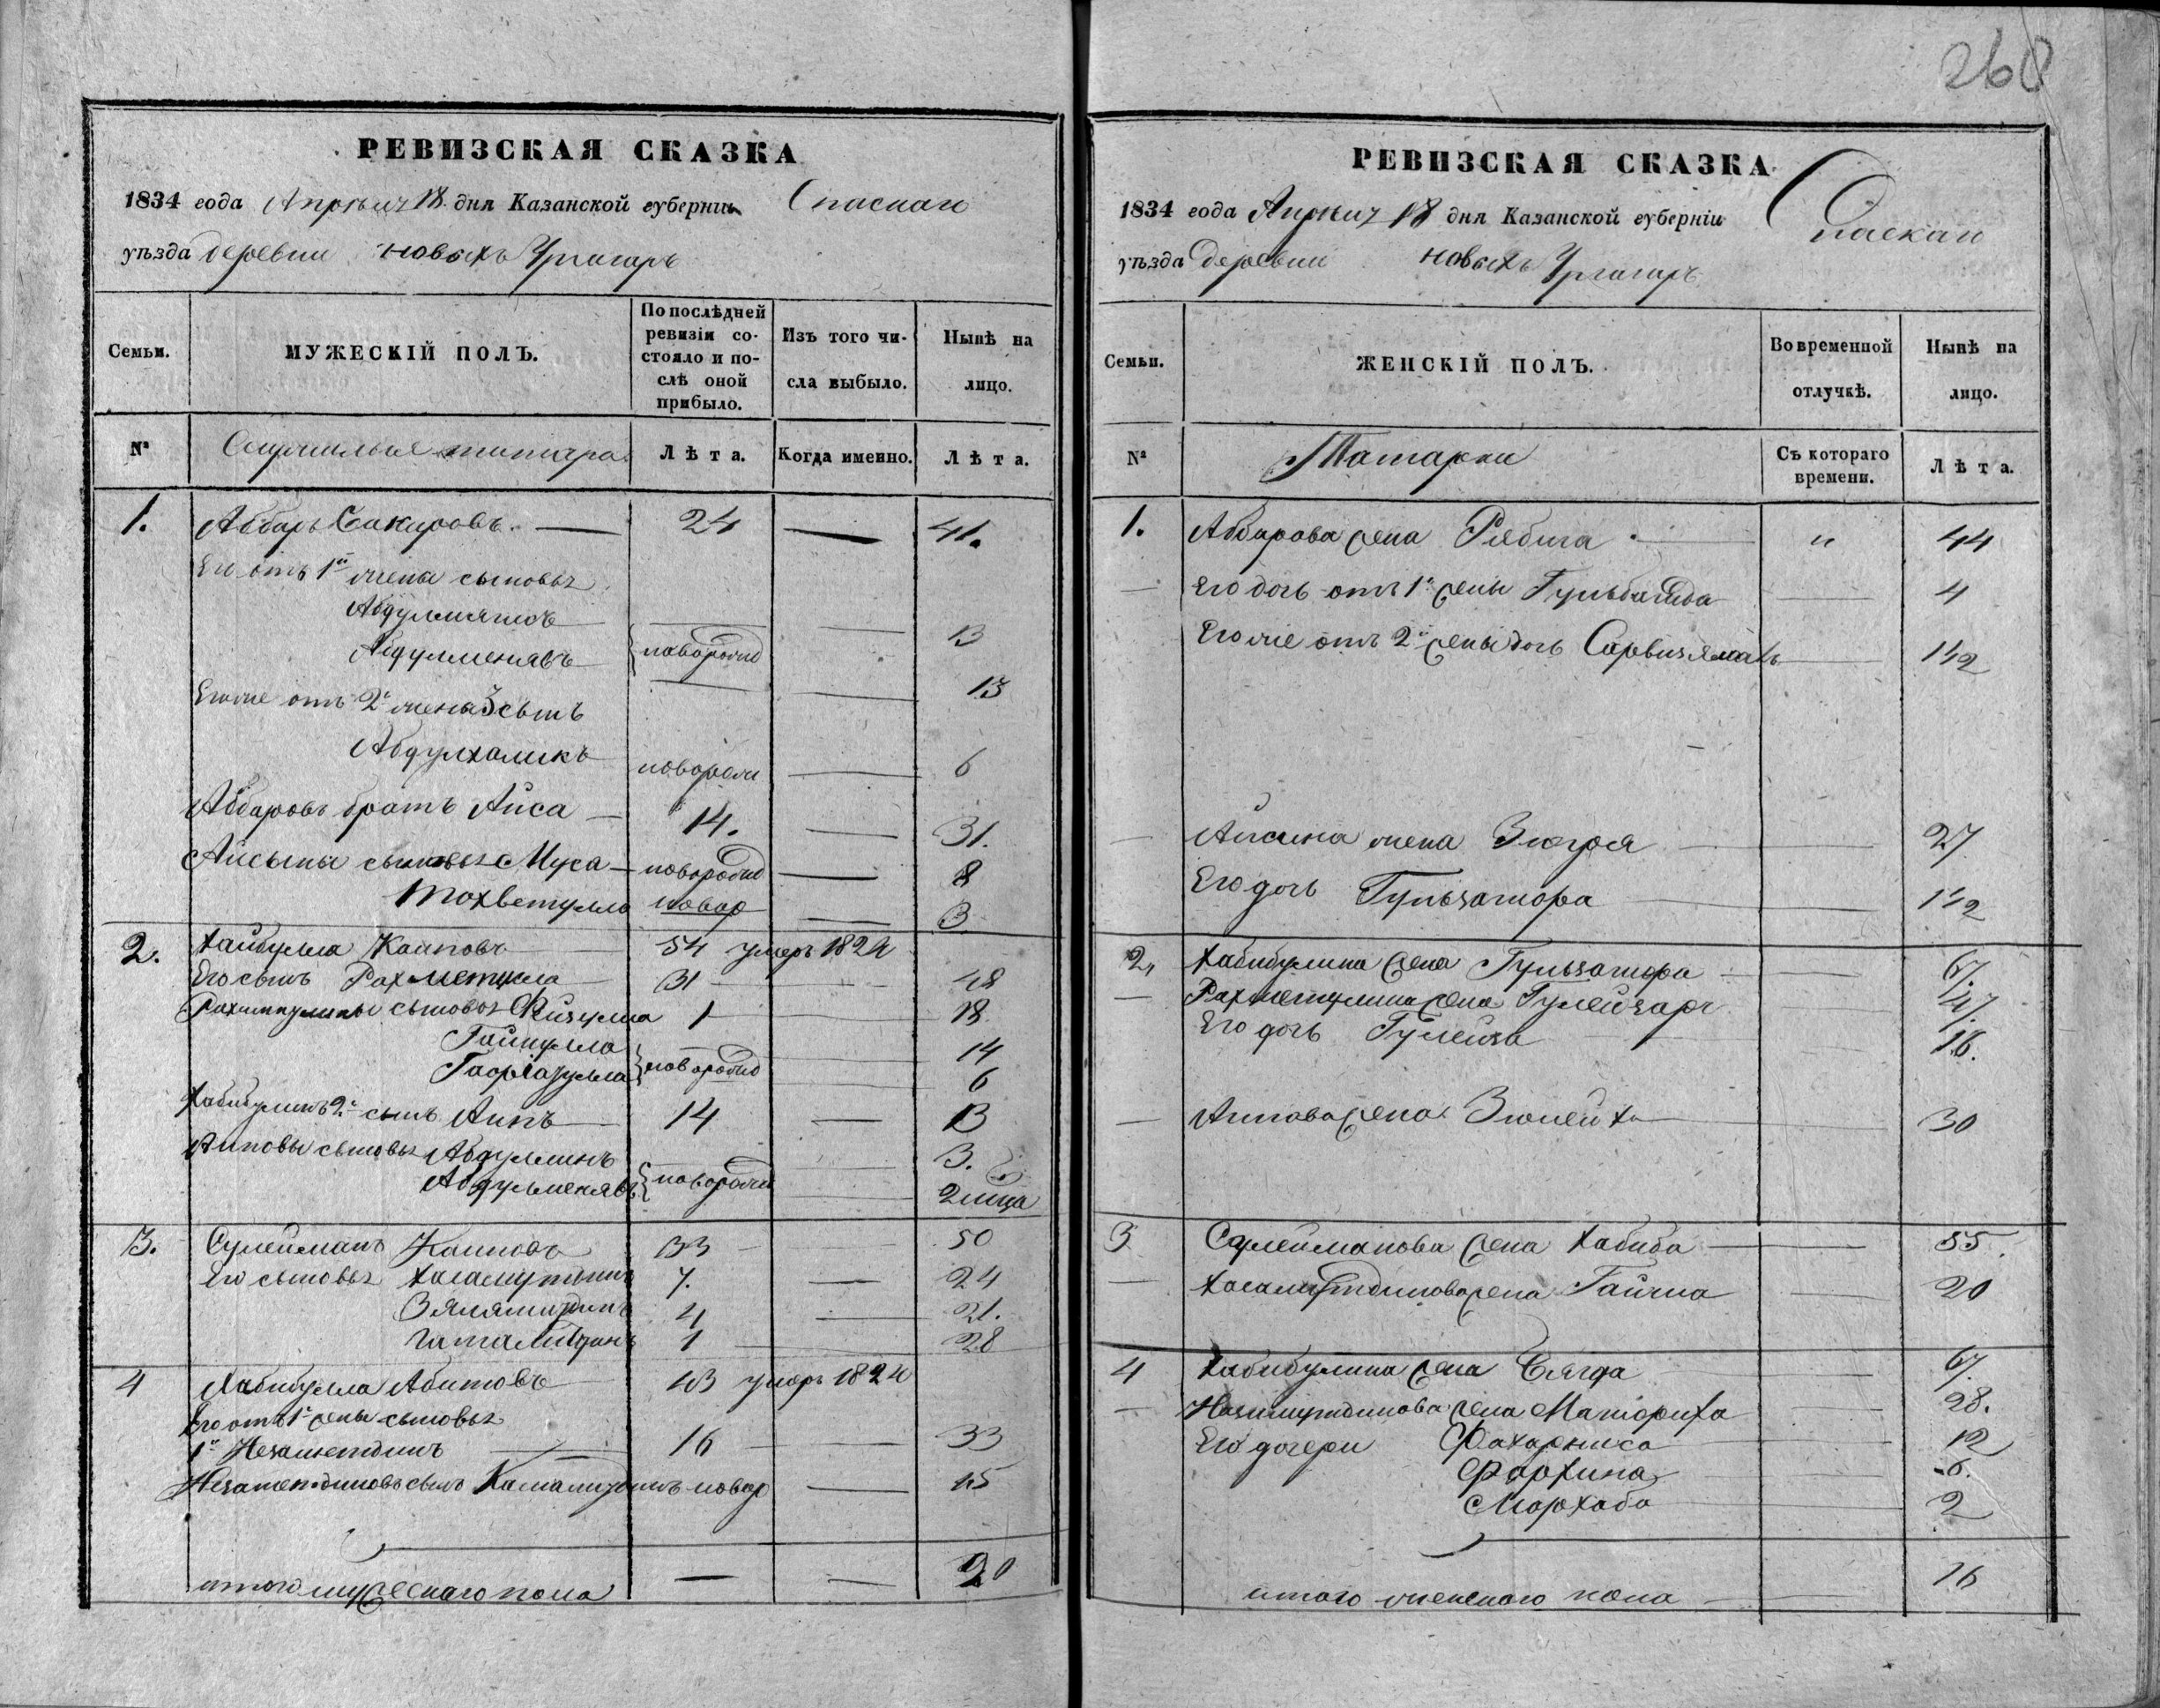 268
РЕВИЗСКАЯ СКАЗКА
1834 года Апреля 18 дня Казанской губерніи Спаскаго
уѣзда деревни новыхъ Ургагаръ
Семьи.
МУЖЕСКІЙ ПОЛЪ.
По послѣдней ревизіи состояло и послѣ оной прибыло.
Изъ того числа выбыло.
Нынѣ на лицо.
№
татара
Лѣта.
Когда именно.
Лѣта.
1. Аббаръ Сакировъ. 24 41.
Его отъ 1й жены сыновья
Абдулменявъ новорожд 13
Его же отъ 2й жены сынъ
Абдулхаликъ новорож 6
Аббаровъ братъ Айса 14. 31.
Айсыны сыновья Муса новорожд 8
Мохветулла новор 3
2. Хайбулла Каиповъ 54 умеръ 1824
Его сынъ Рахметулла 31 48
Рахметуллины сыновья Фейзулла 1 18
Гайнулла 14
новорожд 6
Хабибулинъ 2й сынъ Аипъ 14
Аиповы сыновья Абдулминъ 3.
Абдульменявъ новорожд 2 мца
3. Сулейманъ Каиповъ 33 50
Его сыновья Хасамутдинъ 7. 24
4 21.
1 28
4 Хабибулла Абитовъ 43 умеръ 1824
Его отъ 1й жены сыновья
1й Незаметдинъ 16 33
Незаметдиновъ сынъ Камалитдинъ новор 15
итого мужескаго пола 20
РЕВИЗСКАЯ СКАЗКА
1834 года Апреля 18 дня Казанской губерніи Спаскаго
уѣзда деревни новыхъ Ургагаръ
Семьи.
ЖЕНСКІЙ ПОЛЪ.
Во временной отлучкѣ.
Нынѣ на лицо.
№
Татарки
Съ котораго времени.
Лѣта.
1. Аббарова жена Рябига " 44
Его дочь отъ 1й жены 4
Его же отъ 2й жены дочь Сарвизямалъ 1 1/2
Айсина жена Зюгря 27
Его дочь Гульзатора 1 1/2
2. Хабибулина жена Гульзатора 67.
Рахметулина жена 47.
Его дочь Гулейза 16.
Аипова жена Зюлейха 30
3 Сулейманова жена Хабиба 55.
Хасамутдинова жена Гайша 20
4 Хабибулина жена Сягда 67.
Незамутдинова жена 28.
Его дочери Фахарниса 12
Фархина 6.
Мархаба 2
итого женскаго пола 16